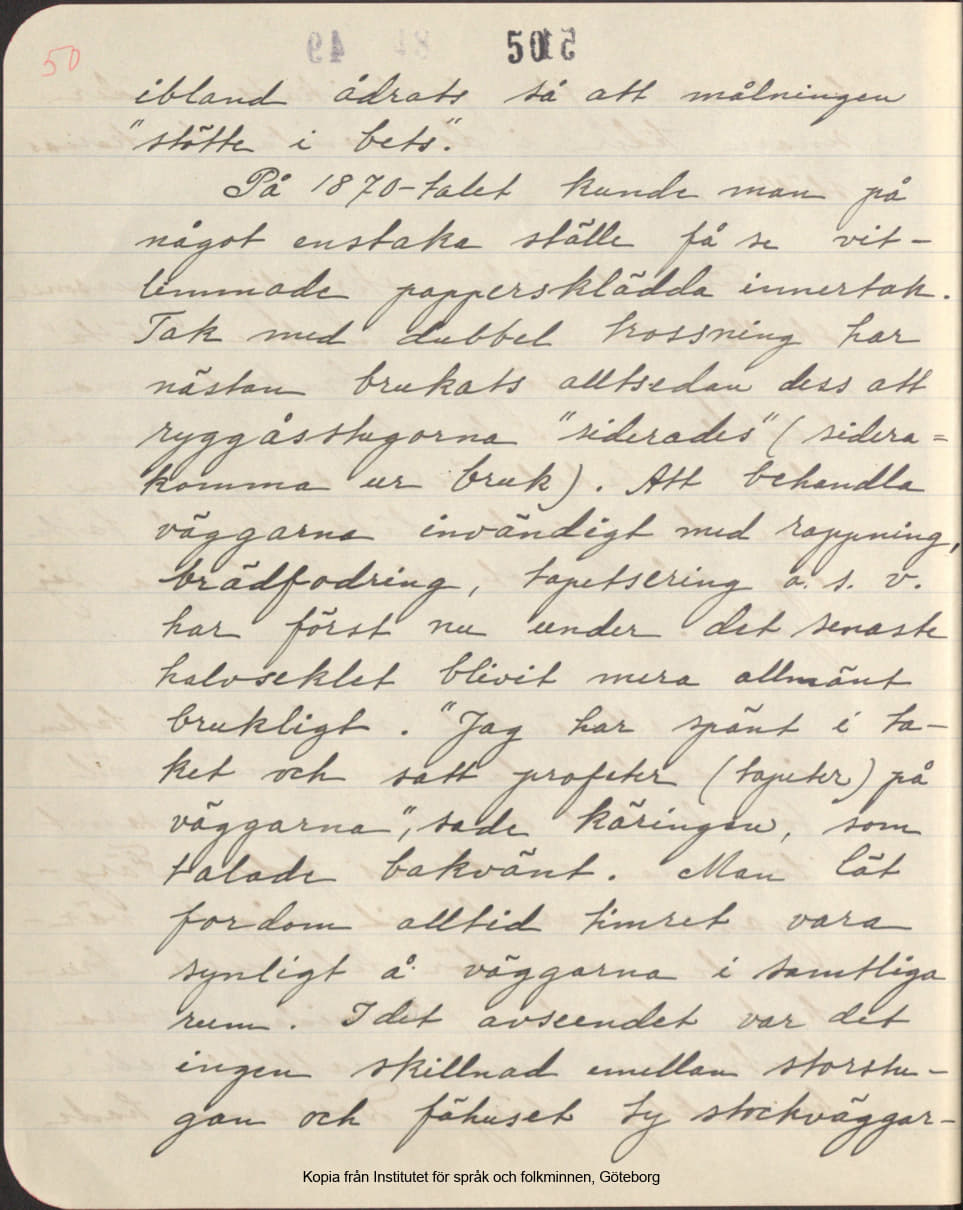 50
50
ibland ådrats så att målningen
"stötte i bets".
På 1870-talet kunde man på
något enstaka ställe få se vit-
limmade pappersklädda innertak.
Tak med dubbel trossning har
nästan brukats alltsedan dess att
ryggåsstugorna "siderades" (sidera=
komma ur bruk). Att behandla
väggarna invändigt med rappning,
brädfodring, tapetsering o. s. v.
har först nu under det senaste
halvseklet blivit mera allmänt
brukligt. "Jag har spänt i ta-
ket och satt profeter (tapeter) på
väggarna", sade käringen, som
talade bakvänt. Man lät
fordom alltid timret vara
synligt å väggarna i samtliga
rum. I det avseendet var det
ingen skillnad emellan storstu-
gan och fähuset ty stockväggar-
Kopia från Institutet för språk och folkminnen, Göteborg